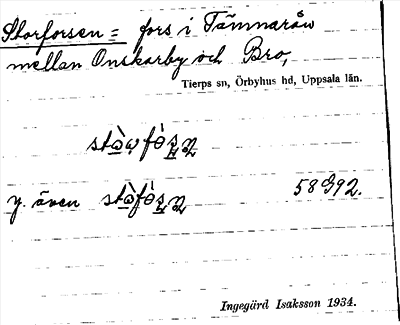 Storforsen = fors i Tämnarån
mellan Onskarby och Bro,
Tierps sn, Örbyhus hd, Uppsala län.
y. även
58G92.
Ingegärd Isaksson 1934.